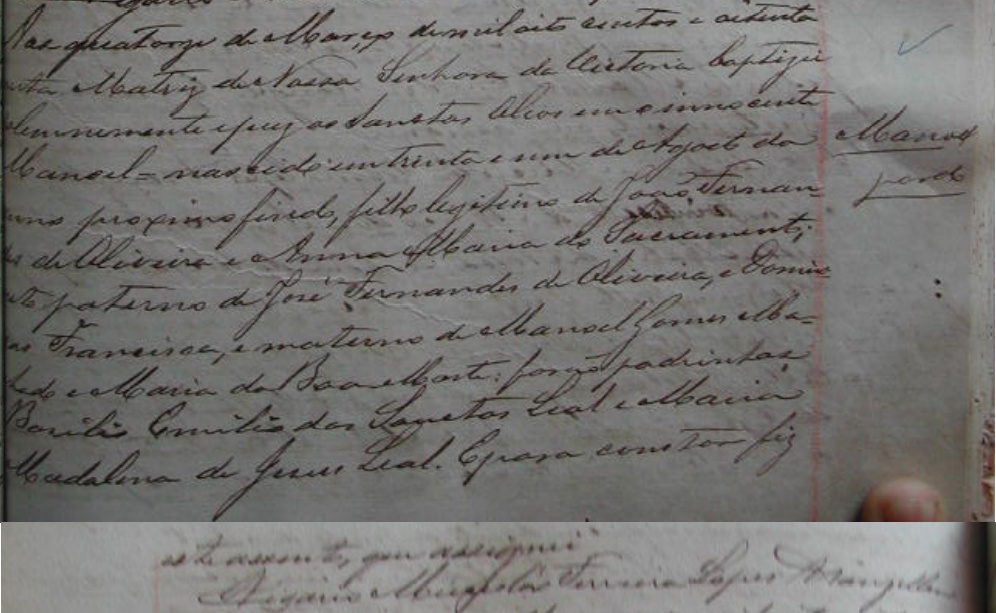 Aos quatorze de Março de mil oito centos e oitenta
nesta Matriz de Nossa Senhora da Victoria baptizei
solemnemente e puz os Sanctos Oleos em o innocente
Manoel = nascido em trinta e um de Agosto do
anno proximo findo, filho legitimo de João Fernan-
des de Oliveira e Anna Maria do Sacramento;
neto paterno de José Fernandes de Oliveira, e Domin-
gas Francisca, e materno de Manoel Gomes Ma-
chado e Maria da Boa Morte: forão padrinhos
Basilio Emilio dos Sanctos Leal e Maria
Madalena de Jesus Leal. E para constar fiz
este assento, que assignei
Vigario Ferreira Lopes
Manoel
pardo